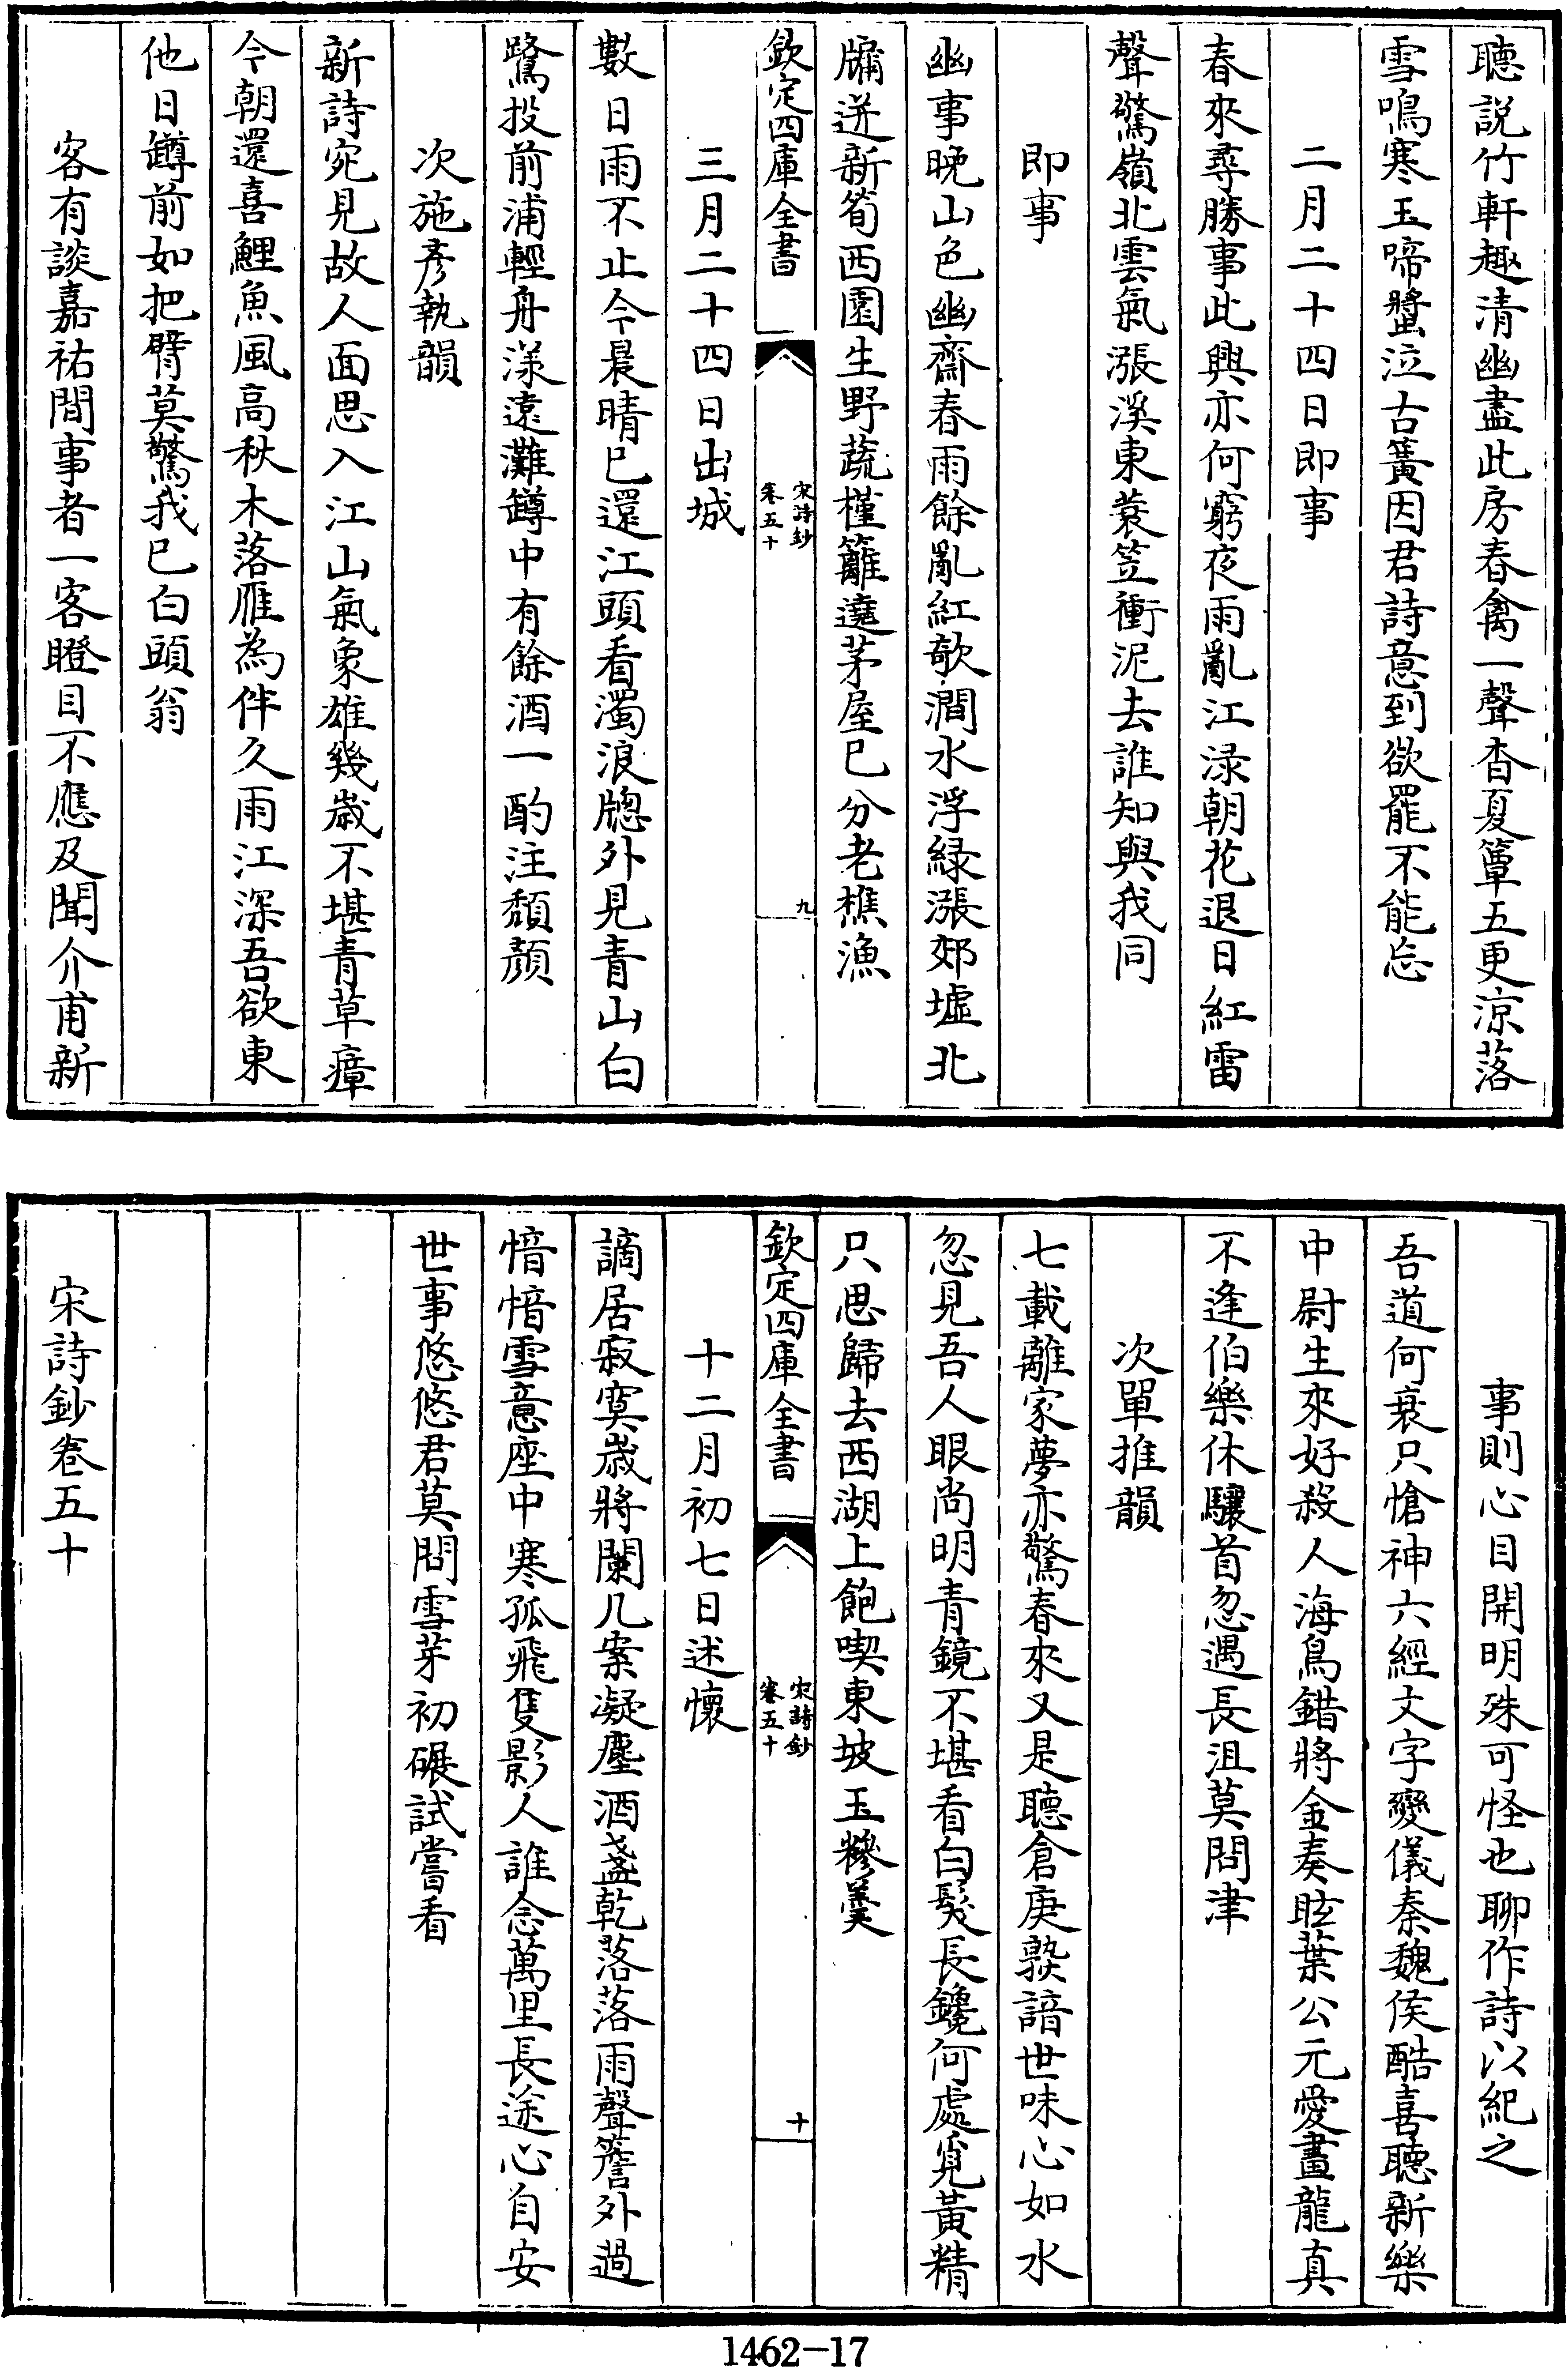 聽説竹軒趣清幽盡此房春禽一聲杳夏簟五更涼落
雪鳴寒玉啼螿泣古簧因君詩意到欲罷不能忘
二月二十四日即事
春來尋勝事此興亦何窮夜雨亂江渌朝花退日紅雷
聲驚嶺北雲氣漲溪東蓑笠衝泥去誰知與我同
即事
幽事晚山色幽齋春雨餘亂紅欹澗水浮緑漲郊墟北
牖迸新筍西園生野蔬槿籬遶茅屋已分老樵漁
欽定四庫全書
宋詩鈔
卷五十
九
三月二十四日出城
數日雨不止今晨晴已還江頭看濁浪牕外見青山白
鷺投前浦輕舟漾遠灘罇中有餘酒一酌注頽顔
次施彥執韻
新詩宛見故人面思入江山氣象雄幾歳不堪青草瘴
今朝還喜鯉魚風高秋木落雁為伴久雨江深吾欲東
他日罇前如把臂莫驚我已白頭翁
客有談嘉祐間事者一客瞪目不應及聞介甫新
事則心目開明殊可怪也聊作詩以紀之
吾道何衰只愴神六經文字變儀秦魏侯酷喜聽新樂
中尉生來好殺人海鳥錯將金奏眩葉公元愛畫龍真
不逢伯樂休驤首忽遇長沮莫問津
次單推韻
七載離家夢亦驚春來又是聽倉庚熟諳世味心如水
忽見吾人眼尚明青鏡不堪看白髮長鑱何處覓黃精
只思歸去西湖上飽喫東坡玉糝羹
欽定四庫全書
宋詩鈔
卷五十
十
十二月初七日述懷
謫居寂寞歳將闌几案凝塵酒盞乾落落雨聲簷外過
愔愔雪意座中寒孤飛隻影人誰念萬里長途心自安
世事悠悠君莫問雪芽初碾試嘗看
宋詩鈔卷五十
1462-17